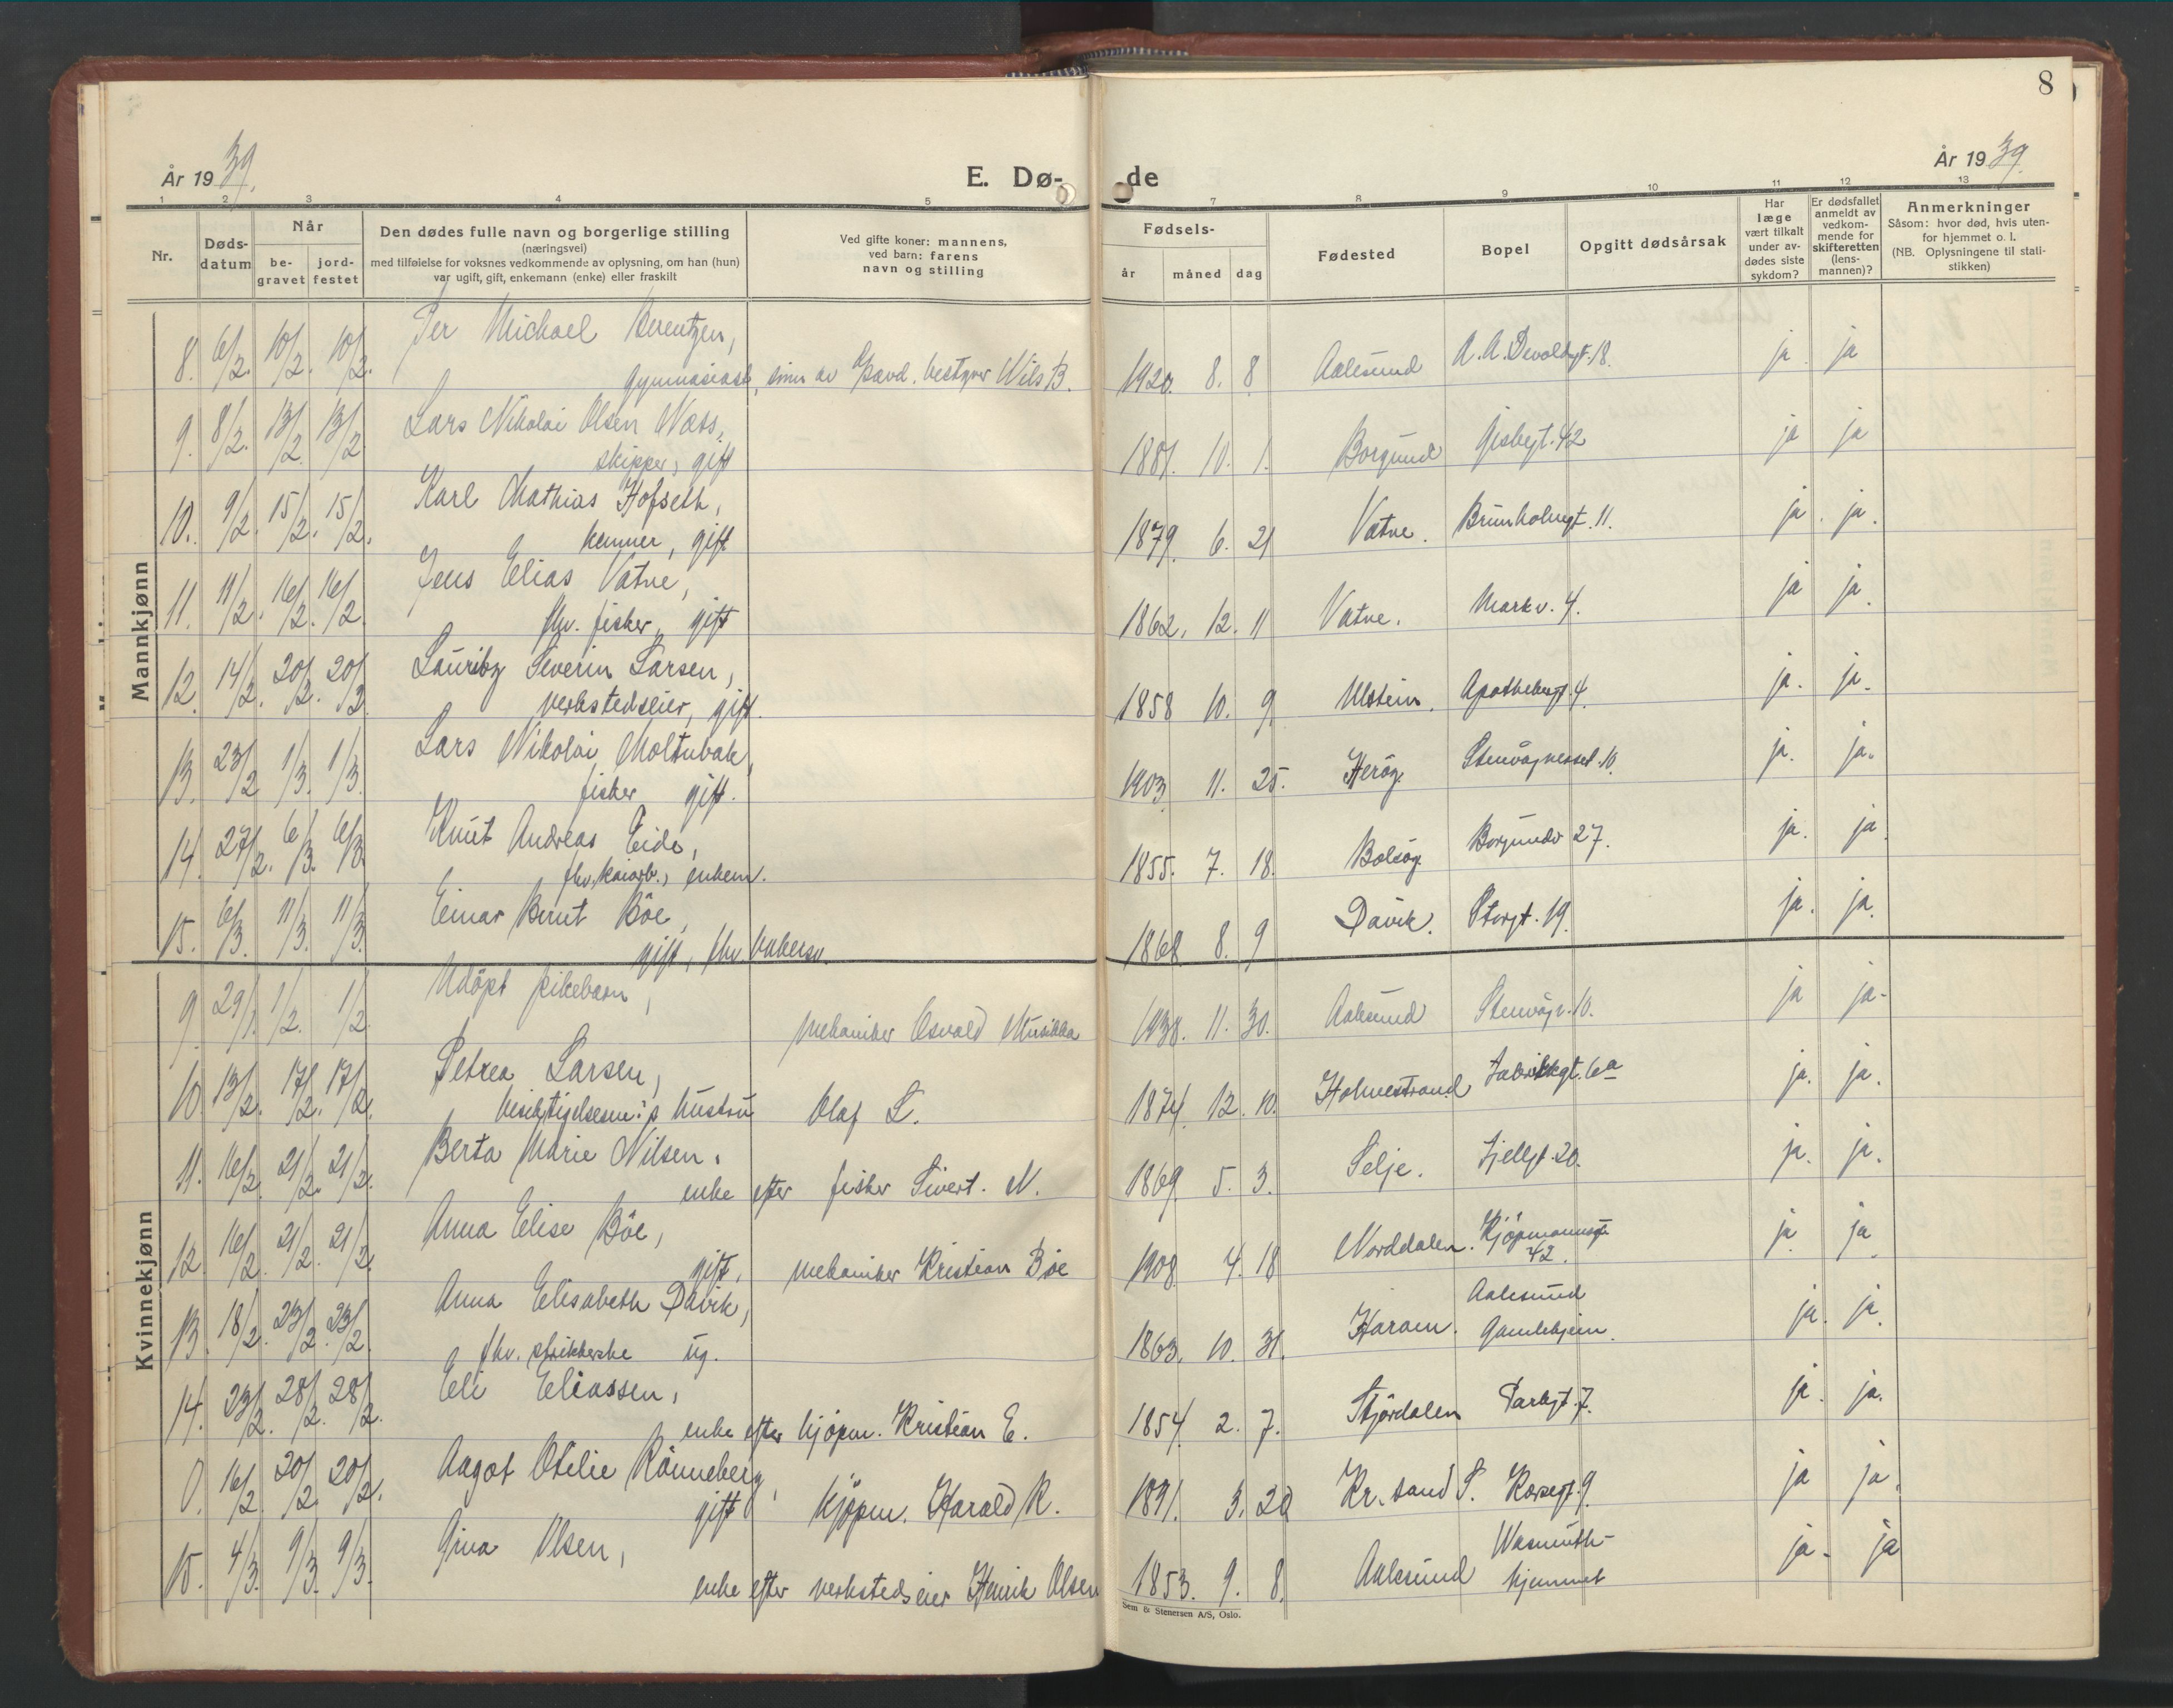 8
År 1939.
E. Dø-
-de
År 1939.
1 2 3 4 5 7 8 9 10 11 12 13
Nr.
Døds-
datum
Når
be-
gravet
jord-
festet
Den dødes fulle navn og borgerlige stilling
(næringsvei)
med tilføielse for voksnes vedkommende av oplysning, om han (hun)
var ugift, gift, enkemann (enke) eller fraskilt
Ved gifte koner: mannens,
ved barn: farens
navn og stilling
Fødsels-
år måned dag
Fødested
Bopel
Opgitt dødsårsak
Har
læge
vært tilkalt
under av-
dødes siste
sykdom?
Er dødsfallet
anmeldt av
vedkom-
mende for
skifteretten
(lens-
mannen)?
Anmerkninger
Såsom: hvor død, hvis uten-
for hjemmet o. l.
(NB. Oplysningene til stati-
stikken)
Mannkjønn
8. 6/2. 10/2. 10/2. Per Michael Berentzen,
gymnasiast, sønn av bestyrer Nils B. 1920. 8. 8 Aalesund A. A. Devoldsgt. 18. ja ja
9. 8/2. 13/2. 13/2. Lars Nikolai Olsen Næss,
skipper, gift 1881. 10. 1. Borgund Giskegt. 42 ja ja
10. 9/2. 15/2. 15/2. Karl Mathias Hofseth,
kemner, gift 1879. 6. 21 Vatne. Brunholmgt. 11. ja. ja.
11. 11/2. 16/2. 16/2. Jens Elias Vatne,
fhv. fisker, gift 1862. 12. 11 Vatne. Markv. 4. ja ja.
12. 14/2. 20/2. 20/2. Lauritz Severin Larsen,
verkstedseier, gift. 1858 10. 9. Ulstein. Apothekergt. 4. ja. ja.
13. 23/2 1/3. 1/3. Lars Nikolai Moltubak,
fisker gift. 1903 11. 25. Herøy. Stenvågnesset. 10. ja. ja.
14. 27/2. 6/3. 6/3. Knut Andreas Eide,
fhv. kaiarb., enkem. 1855. 7. 18. Bolsøy. Borgundv 27. ja. ja.
15. 6/3. 11/3. 11/3. Einar Bernt Böe,
gift, fhv. 1868 8. 9 Davik. Storgt. 19. ja. ja.
Kvinnekjønn
9. 29/1. 1/2. 1/2. Udöpt pikebarn,
mekaniker Osvald 1938. 11. 30. Aalesund Stenvågv. 10. ja ja.
10. 13/2. 17/2. 17/2. Petrea Larsen,
hustru Olaf L. 1874. 12. 10. Holmestrand Fabrikkgt. 6a ja. ja.
11. 16/2. 21/2. 21/2. Berta Marie Nilsen.
enke efter fisker Sivert. N. 1869. 5. 3. Selje. Fjellgt. 20. ja. ja.
12. 16/2. 21/2. 21/2. Anna Elise Böe,
gift, mekaniker Kristian Böe 1908 4. 18 Norddalen. Kjöpmannsgt.
42. ja ja.
13. 18/2. 23/2. 23/2. Anna Elisabeth Davik,
fhv. strikkerske ug. 1863. 10. 31. Haram. Aalesund
Gamlehjem. ja. ja.
14. 23/2. 28/2. 28/2. Eli Eliassen,
enke efter kjöpm. Kristian E. 1854. 2. 7. Stjördalen Parkgt. 7. ja. ja.
0. 16/2 20/2. 20/2. Aagot Otilie Rönneberg,
gift kjöpm. Harald R. 1891. 3. 20 Kr. sand S. Korsegt. 9. ja ja.
15. 4/3. 9/3. 9/3. Gina Olsen,
enke efter verkstedseier Henrik Olsen 1853. 9. 8. Aalesund Wasmuth-
hjemmet ja. ja
Sem & Stenersen A/S, Oslo.